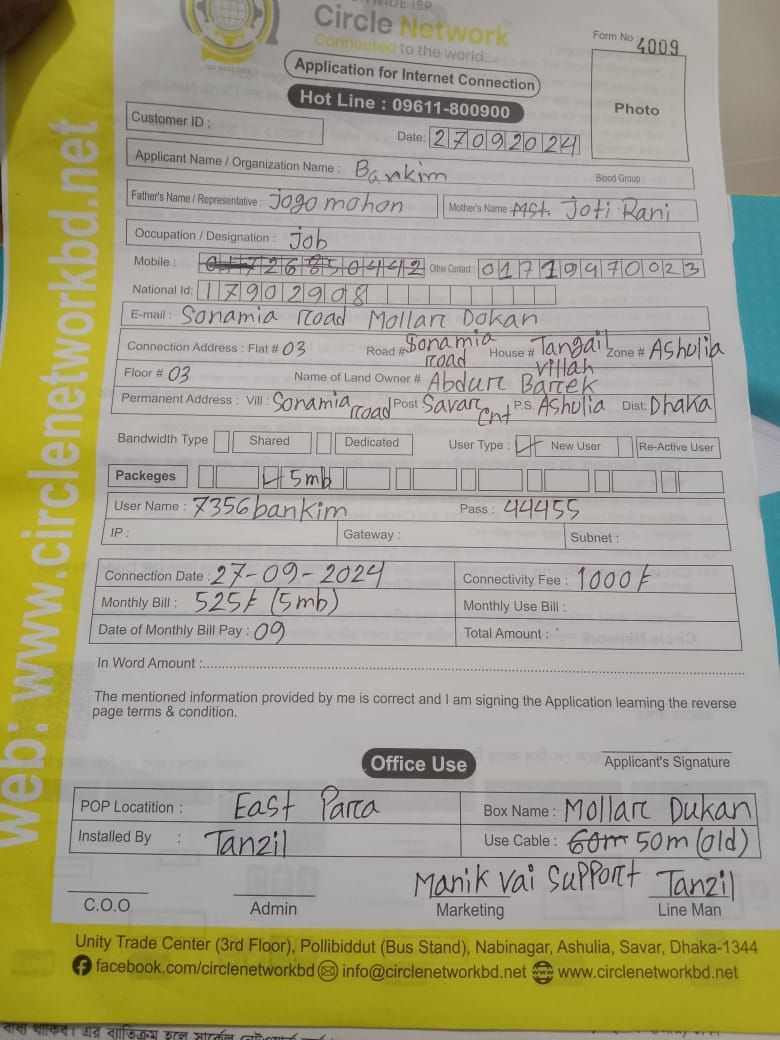 WIDE ISP
Circle Network
Connected to the world...
Form No : 4009
Application for Internet Connection
Hot Line : 09611-800900
Photo
Customer ID :
Date: 27092024
Applicant Name / Organization Name : Bankim Blood Group :
Father's Name / Representative : Jogo mohon Mother's Name : MSt. Joti Rani
Occupation / Designation : Job
Mobile : 01726850442 Other Contact : 01719970023
National Id: 17902908
E-mail : Sonamia Road Mollar Dokan
Connection Address : Flat # 03 Road # Sonamia road House # Tangail villah Zone # Ashulia
Floor # 03 Name of Land Owner # Abdur Barek
Permanent Address : Vill : Sonamia road Post Savar Cnt P.S. Ashulia Dist: Dhaka
Bandwidth Type Shared Dedicated User Type : New User Re-Active User
Packeges 5mb
User Name : 7356bankim Pass : 44455
IP : Gateway : Subnet :
Connection Date : 27-09-2024 Connectivity Fee : 1000/-
Monthly Bill : 525/- (5mb) Monthly Use Bill :
Date of Monthly Bill Pay : 09 Total Amount :
In Word Amount :
The mentioned information provided by me is correct and I am signing the Application learning the reverse
page terms & condition.
Applicant's Signature
Office Use
POP Locatition : East Para Box Name : Mollar Dukan
Installed By : Tanzil Use Cable : 60m 50m (old)
Manik vai support Tanzil
C.O.O Admin Marketing Line Man
Unity Trade Center (3rd Floor), Pollibiddut (Bus Stand), Nabinagar, Ashulia, Savar, Dhaka-1344
facebook.com/circlenetworkbd info@circlenetworkbd.net www.circlenetworkbd.net
web: www.circlenetworkbd.net